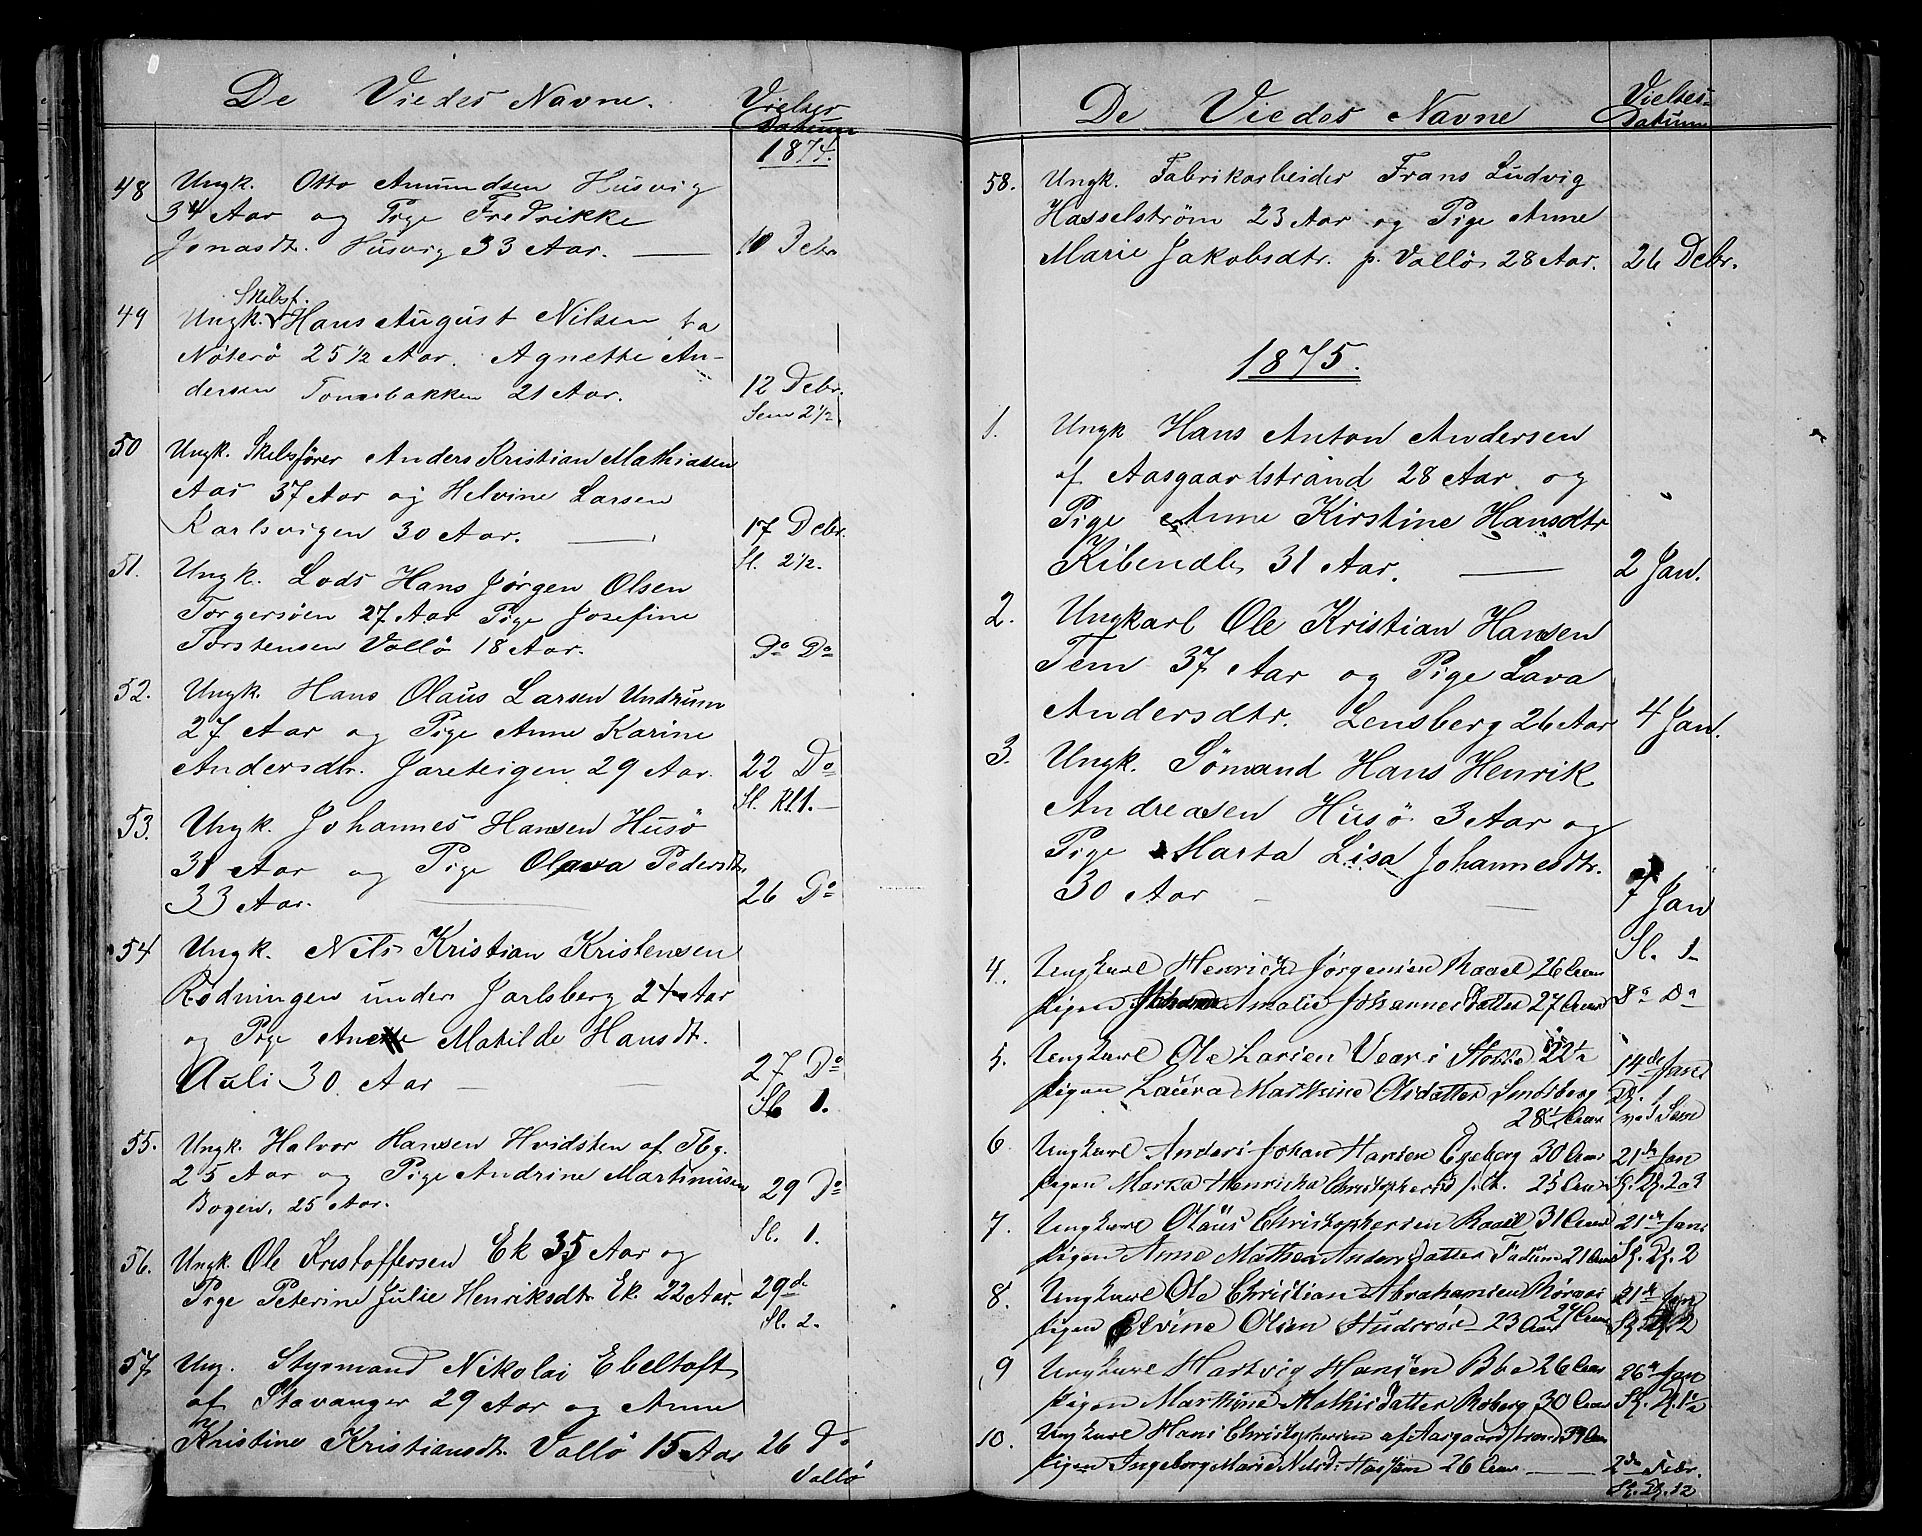 De Viedes Navne.
Vielses
Datum
1874.
48 Ungk. Otto Amundsen Husvig
34 Aar og Pige Fredrikke
Jonasdt. Husvig 33 Aar. 10 Debr
Skibsf.
49 Ungk. Hans August Nilsen
Nøterø 25 1/2 Aar. Agnette An-
dersen Tonsebakken 21 Aar. 12 Debr.
Sem 2 1/2
50 Ungk. Skibsfører Anders Kristian Mathiasen
Aas 37 Aar og Helvine Larsen
Karlsvigen 30 Aar. 17 Debr.
Sl. 2 1/2.
51. Ungk. Lods Hans Jørgen Olsen
Torgersøen 27 Aar Pige Josefine
Torstensen Vallö 18 Aar. Do Do
52. Ungk. Hans Olaus Larsen Undrum
27 Aar og Pige Anne Karine
Andersdtr. Jareteigen 29 Aar. 22 Do
Sl. Kl 1.
53. Ungk. Johannes Hansen Husö
31 Aar og Pige Olava Pedersdt.
33 Aar. 26 Do
54 Ungk. Nils Kristian Kristensen
Rødningen under Jarlsberg 24 Aar
og Pige Anette Matilde Hansdt.
Auli 30 Aar 27 Do
Sl. 1.
55. Ungk. Halvor Hansen Hvidsten af Tbg.
25 Aar og Pige Andrine Martinusen
Bogen. 25 Aar. 29 Do
Sl. 1.
56. Ungk. Ole Kristoffersen Ek 35 Aar og
Pige Peterine Julie Henriksdt. Ek. 22 Aar. 29 d.
Sl. 2.
57. Ung. Styrmand Nikolai Ebeltoft
af Stavanger 29 Aar og Anne
Kristine Kristiansdt. Vallö 15 Aar 26 Do
Vallö
De Viedes Navne
Vielses-
Datum
58. Ungk. Fabrikarbeider Frans Ludvig
Hasselstrøm 23 Aar og Pige Anne
Marie Jakobsdtr. p. Vallö 28 Aar. 26 Debr.
1875.
1. Ungk Hans Anton Andersen
af Aasgaardstrand 28 Aar og
Pige Anne Kirstine Hansdtr
Kibendl 31 Aar. 2 Jan.
2. Ungkarl Ole Kristian Hansen
Tem 37 Aar og Pige Lava
Andersdtr. Lensberg 26 Aar 4 Jan.
3. Ungk. Sömand Hans Henrik
Andreasen Husö 3 Aar og
Pige Marta Lisa Johannesdtr.
30 Aar 7 Jan
Sl. 1
4. Ungkarl Henrich Jørgensen Raael 26 Aar
Pigen Amalie Johannesdatter 27 Aar 8 Do
5. Ungkarl Ole Larsen Vear i Stokke 22 1/2 14de Jan
Pigen Laura Mathine Olsdatter Smidsberg
28 1/2 Aar
6 Ungkarl Anders Johan Hansen Ekeberg 30 Aar 21de Jan
Pigen Marta Henricka Christophersd 25 Aar Sl. Kl. 2 a 3
7. Ungkarl Olaüs Christophersen Raael 31 Aar 21de Jan
Pigen Anne Mathea Andersdatter Fadum 21 Aar Sl. Kl. 2
8. Ungkarl Ole Christian Abrahamsen Røraas 21de Jan
27 Aar
Pigen Elvine Olsen Husesøe 23 Aar Sl. Kl. 2
9 Ungkarl Hartvig Hansen Bbe 26 Aar 26de Jan
Pigen Marthine Mathisdatter Roberg 30 Aar Sl. Kl. 1 1/2
10. Ungkarl Hans Christophersen af Aasgaardstrand
Pigen Ingeborg Marie Nilsd. 26 Aar 2den Febr.
Sl. Kl. 12